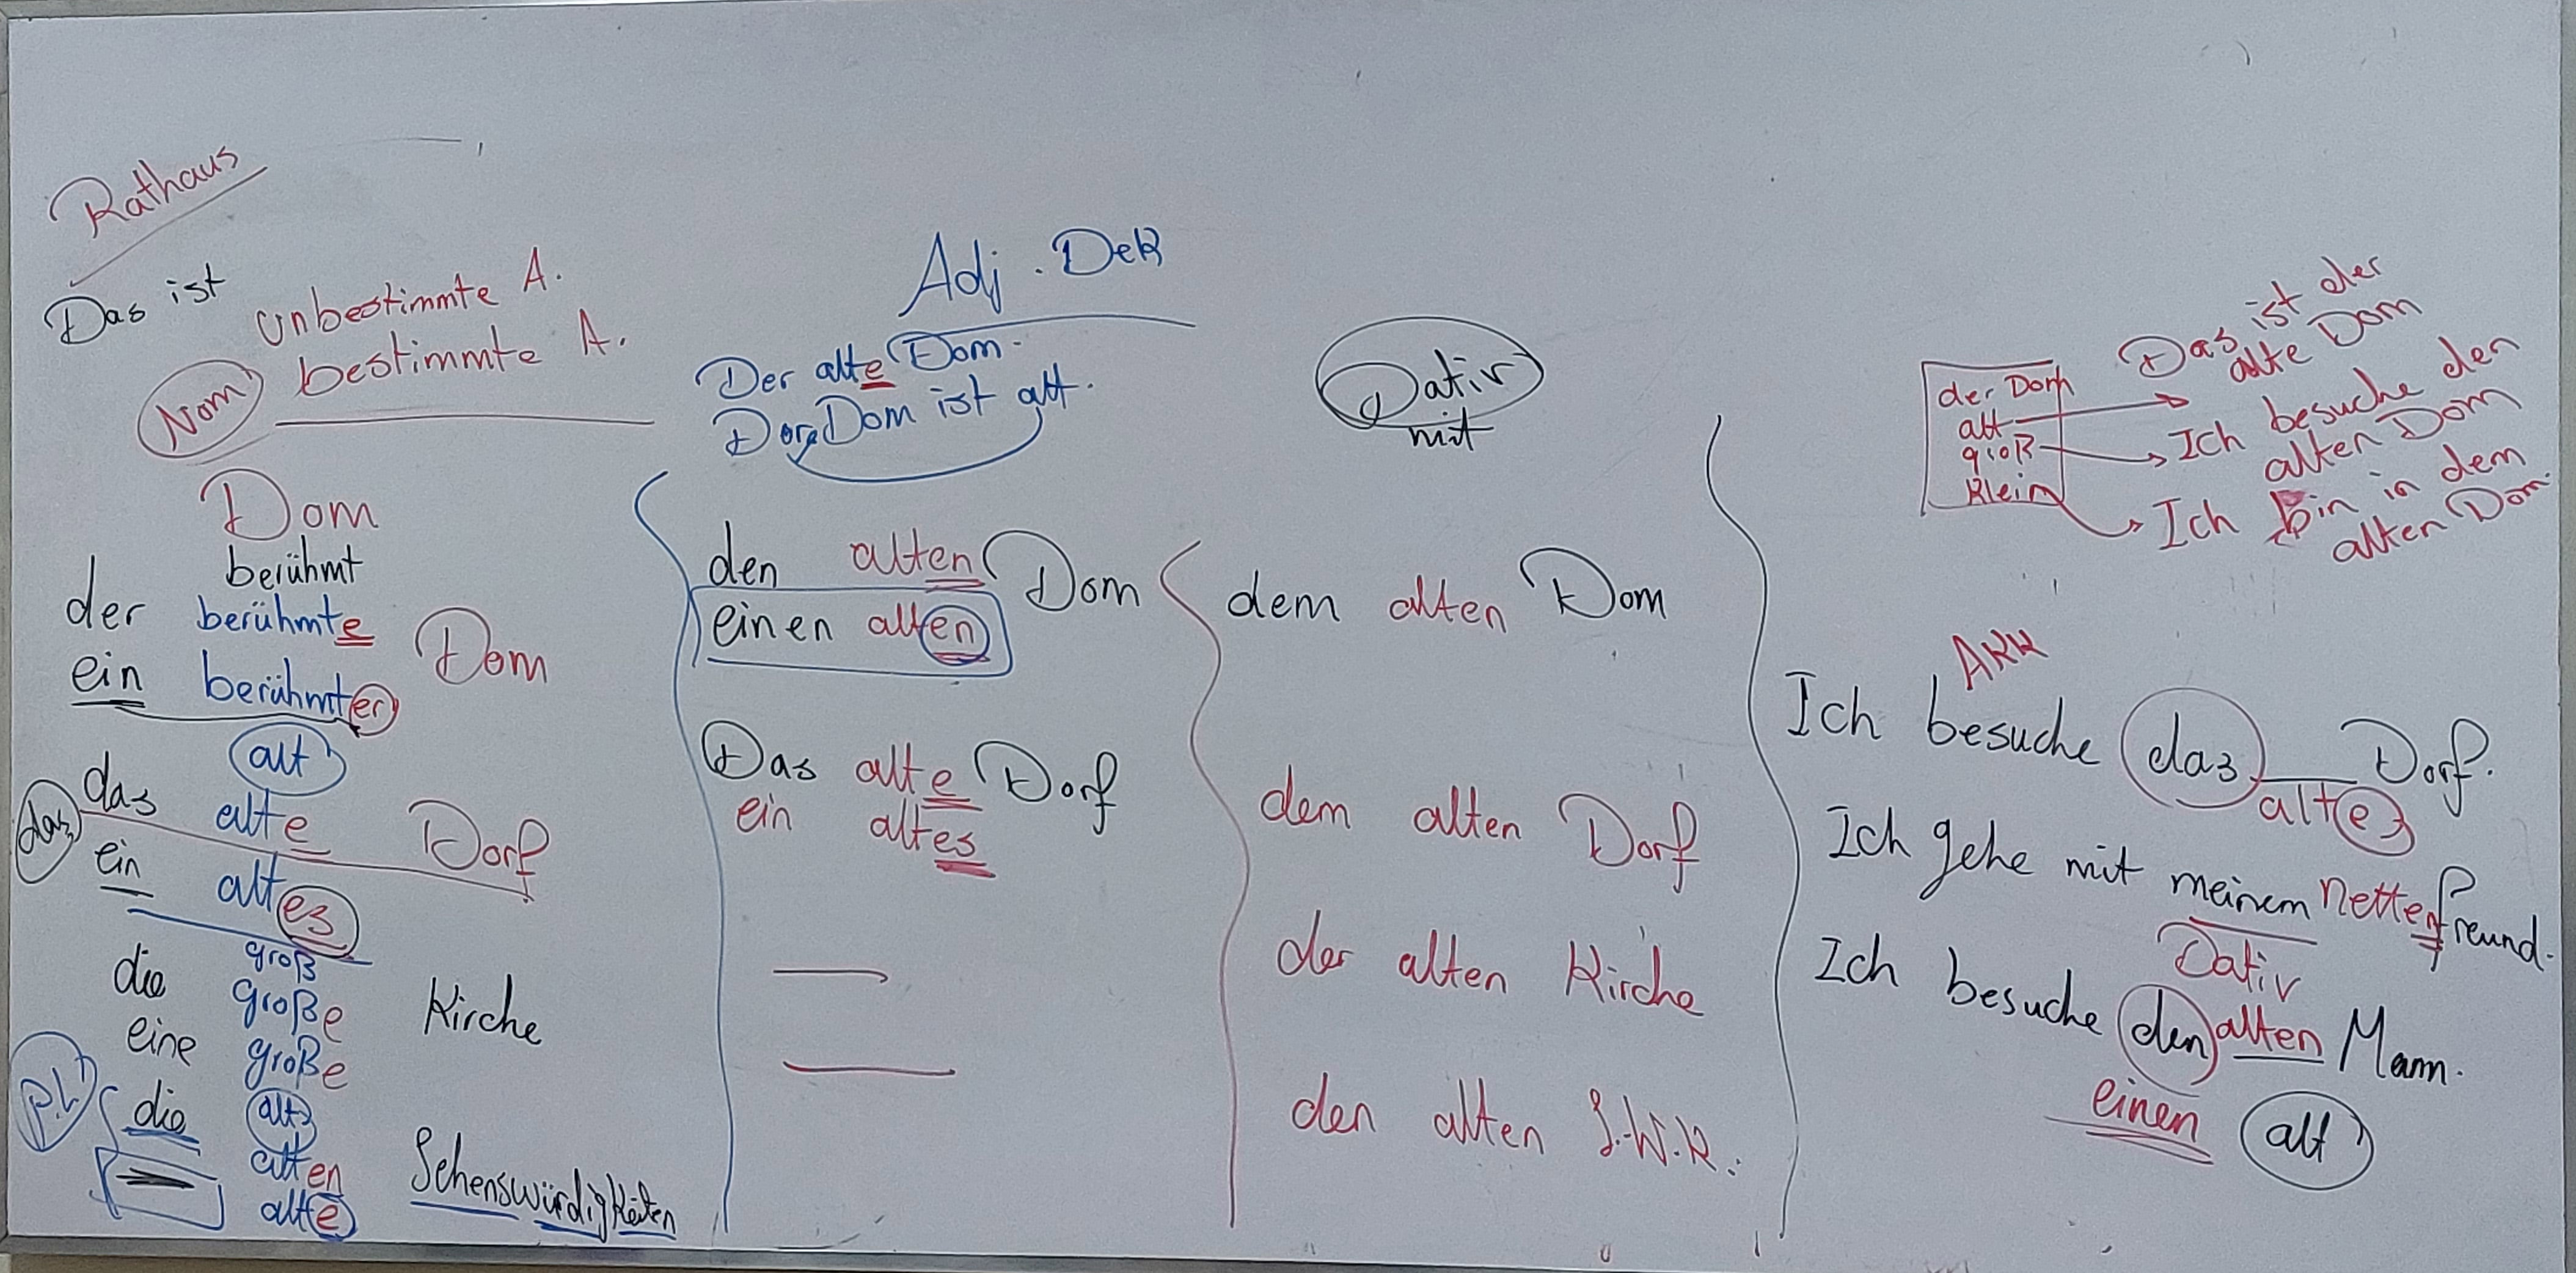 Rathaus
Das ist
unbestimmte A.
bestimmte A.
Nom
Dom
berühmt
der berühmte Dom
ein berühmter
alt
das alte Dorf
das
ein altes
groß
die große Kirche
eine große
P.L
die alt
alten Sehenswürdigkeiten
alte
Adj. Dek
Der alte Dom.
Der Dom ist alt.
den alten Dom
einen alten
Das alte Dorf
ein altes
Dativ
mit
dem alten Dom
dem alten Dorf
der alten Kirche
den alten S.W.K.
der Dom
alt
groß
klein
Das ist der
alte Dom
Ich besuche den
alten Dom
Ich bin in dem
alten Dom.
Akk
Ich besuche das Dorf.
alte
Ich gehe mit meinem netten Freund.
Dativ
Ich besuche den alten Mann.
einen alt